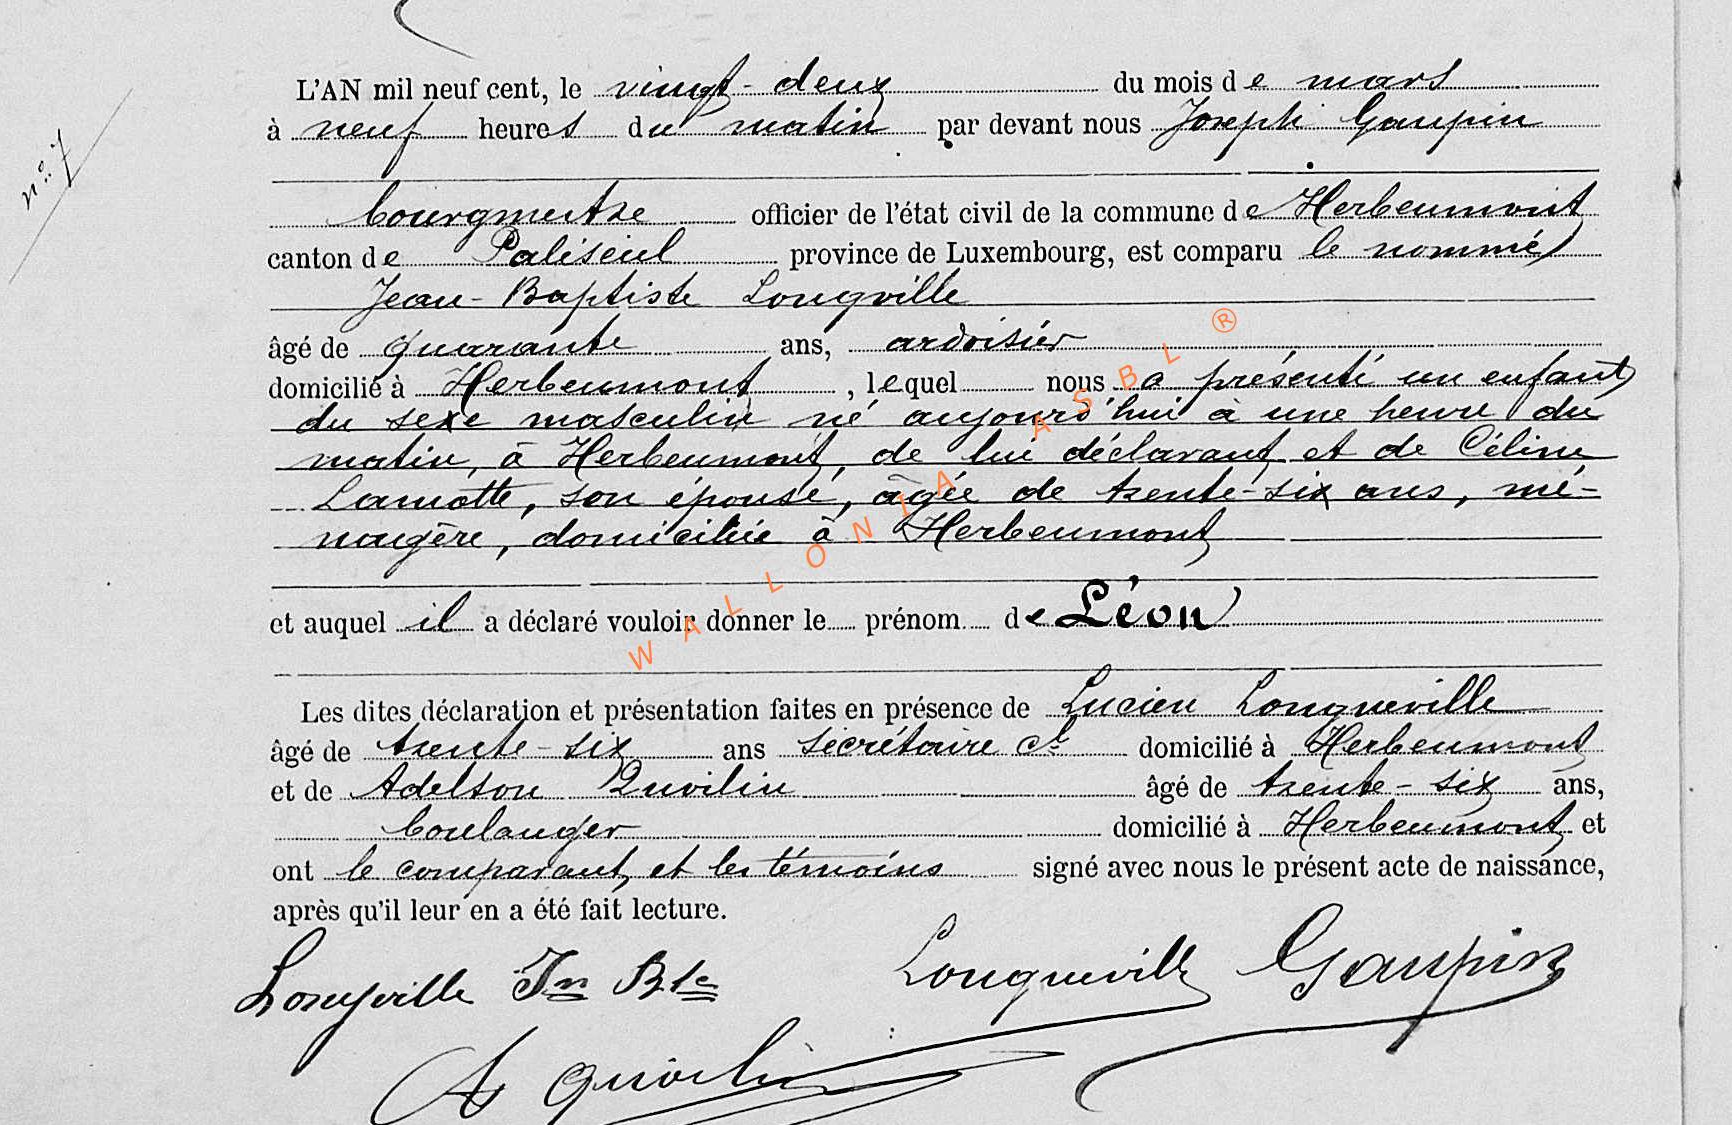 n° 7
L'AN mil neuf cent, le vingt-deux du mois de mars
à neuf heures du matin par devant nous Joseph Gaupin
bourgmestre officier de l'état civil de la commune de Herbeumont
canton de Paliseul province de Luxembourg, est comparu le nommé
Jean-Baptiste Longville
âgé de quarante ans, ardoisier
domicilié à Herbeumont, lequel nous a présenté un enfant
du sexe masculin né aujourd'hui à une heure du
matin, à Herbeumont, de lui déclarant et de Céline
Lamotte, son épouse, âgée de trente-six ans, mé-
nagère, domiciliée à Herbeumont
et auquel il a déclaré vouloir donner le prénom de Léon
Les dites déclaration et présentation faites en présence de Lucien Longueville
âgé de trente-six ans secrétaire cl domicilié à Herbeumont
et de Adelson Quoilin âgé de trente-six ans,
boulanger domicilié à Herbeumont et
ont le comparant et les témoins signé avec nous le présent acte de naissance,
après qu'il leur en a été fait lecture.
Longville Jn Bte Longueville Gaupin
A Quoilin
WALLONIA ASBL ®